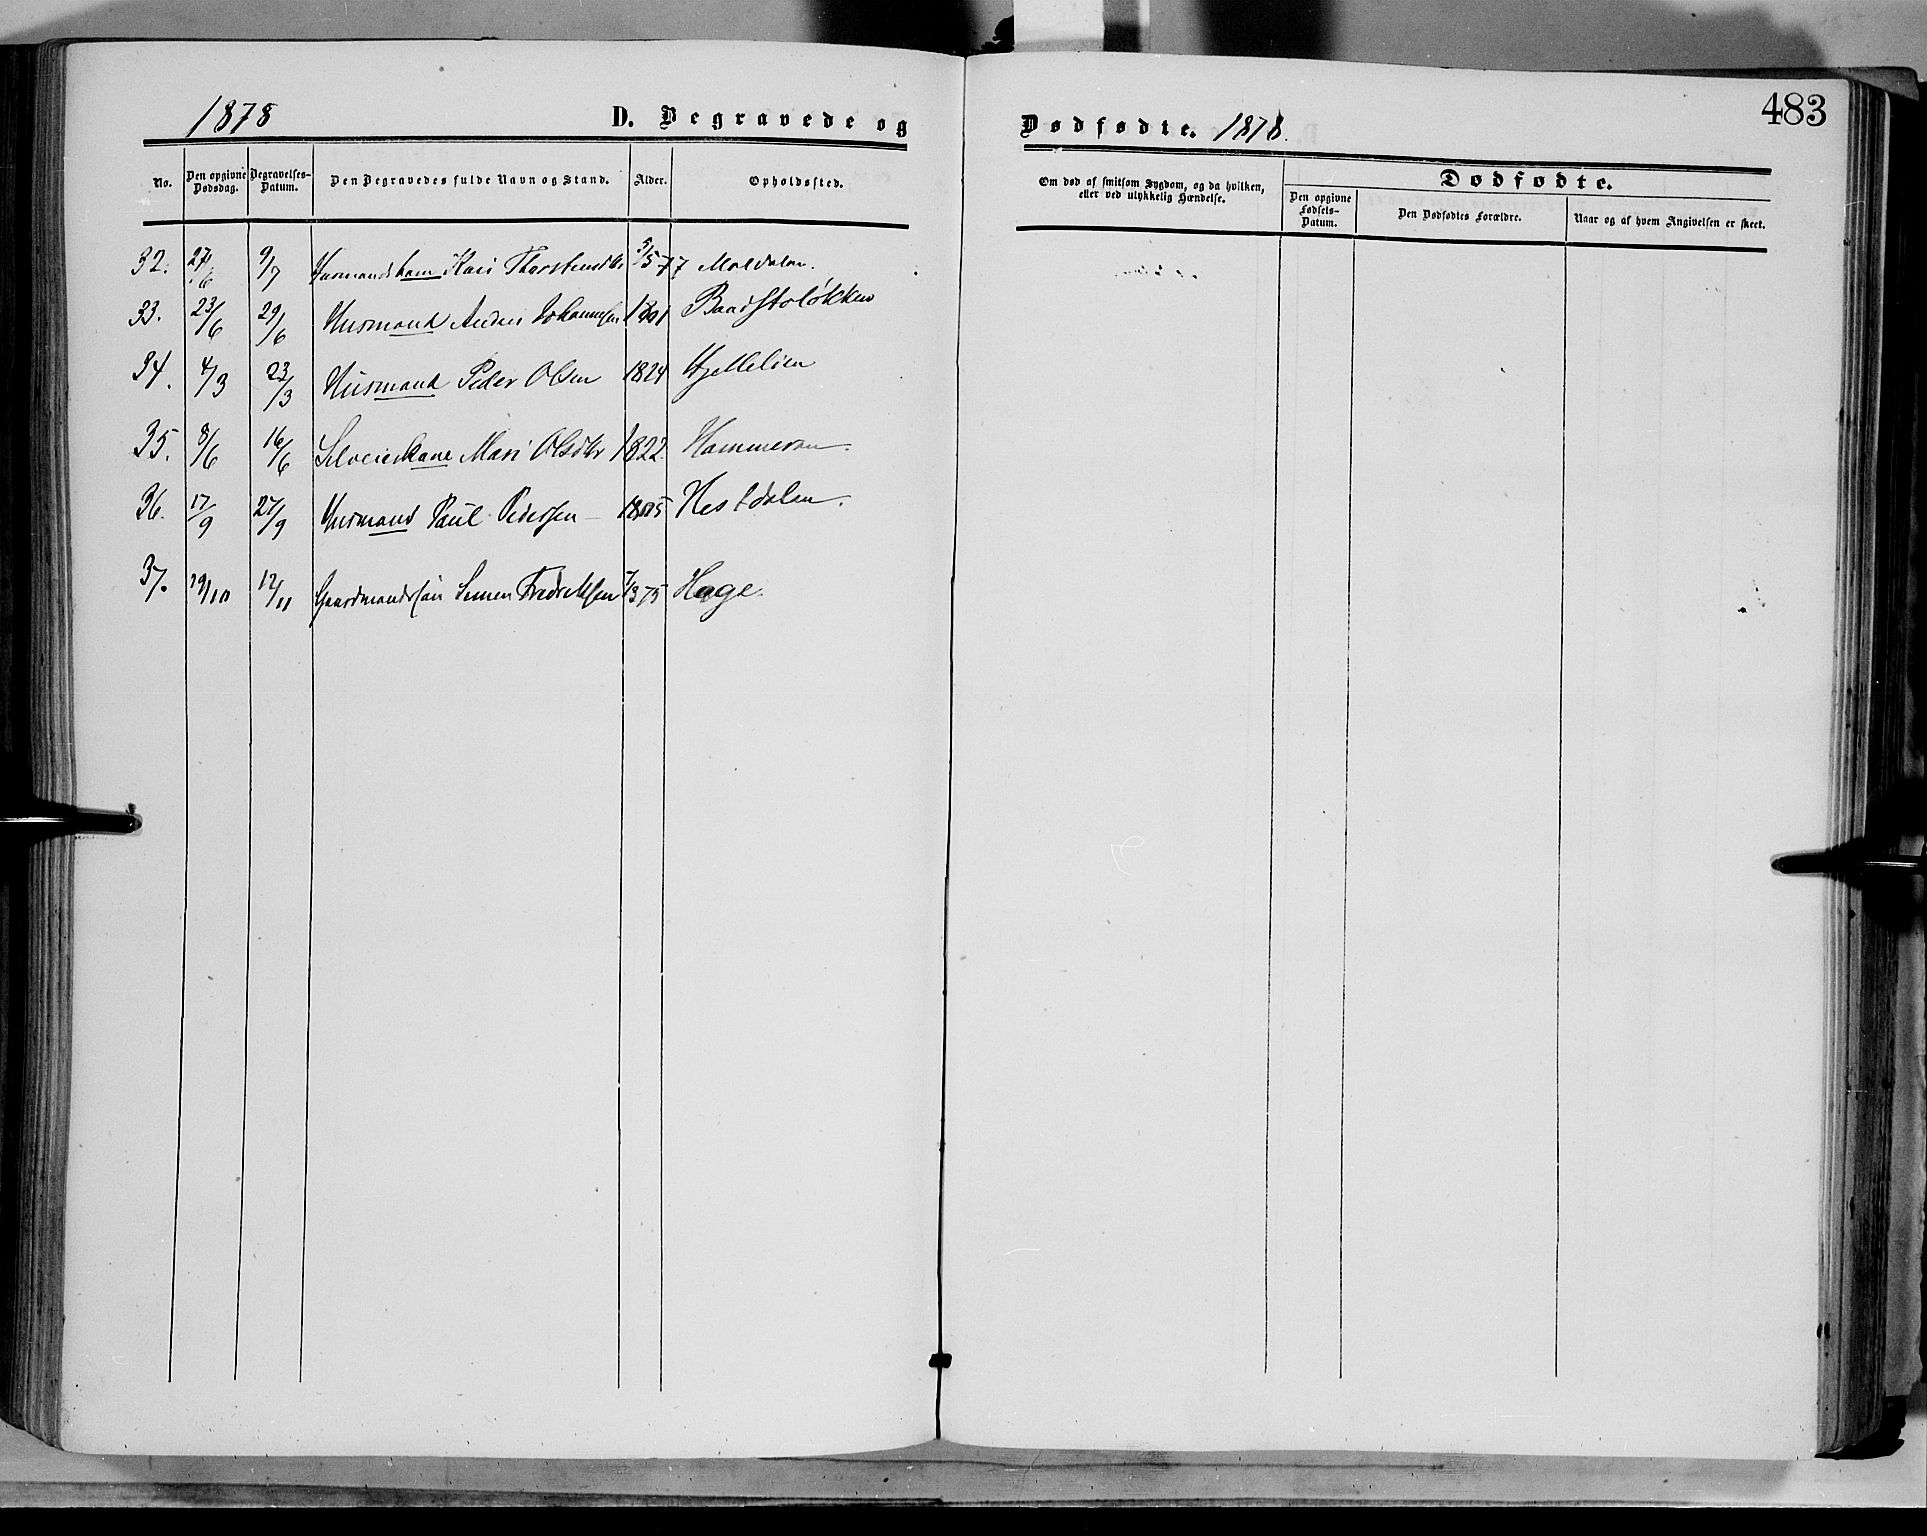 1878 D. Begravede og
No. Den opgivne Dødsdag. Begravelses-Datum. Den Begravedes fulde Navn og Stand. Alder. Opholdssted.
32. 27/6 9/7 Kari Moldalen.
33. 23/6 29/6 Husmand Anders Johannesen 1801 Baadstoløkken
34. 4/3 23/3 Husmand Peder Olsen 1824 Hjellelien
35. 8/6 16/6 Mari Olsdtr 1822. Hammeren.
36. 17/9 27/9 Husmand Paul Pedersen - 1805 Hestdalen.
37. 29/10 12/11 Gaardmandssøn Simen Fredriksen 7/3 75 Hage.
483
Dødfødte. 1878.
Om død af smitsom Sygdom, og da hvilken, eller ved ulykkelig Hændelse.
Dødfødte.
Den opgivne Fødsels-Datum. Den Dødfødtes Forældre. Naar og af hvem Angivelsen er skeet.